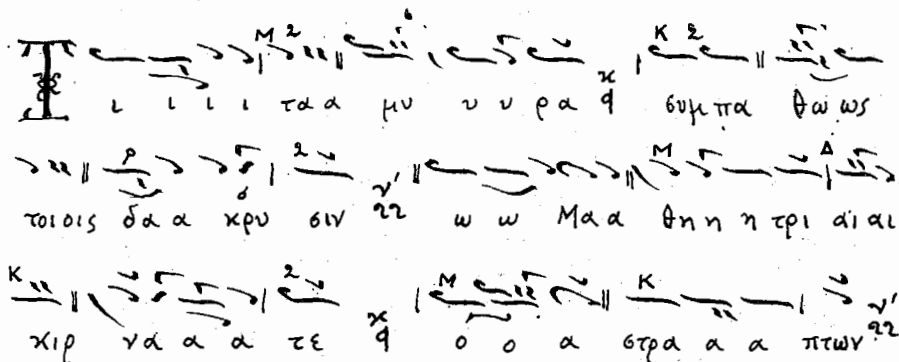 Τ ι ι ι ι τα α μυ υ υ ρα συμ πα θω ως
τοι οις δα α κρυ σιν ω ω Μα α θη η η τρι αι αι
κιρ να α α τε ο ο α στρα α α πτων